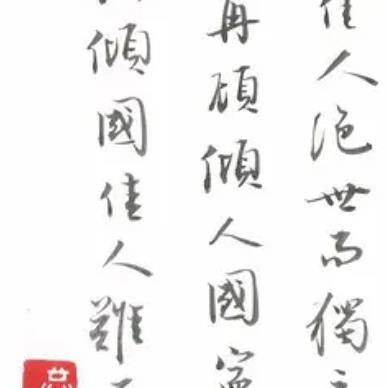 佳人絕世而獨
再顧傾人國寧
傾國佳人難